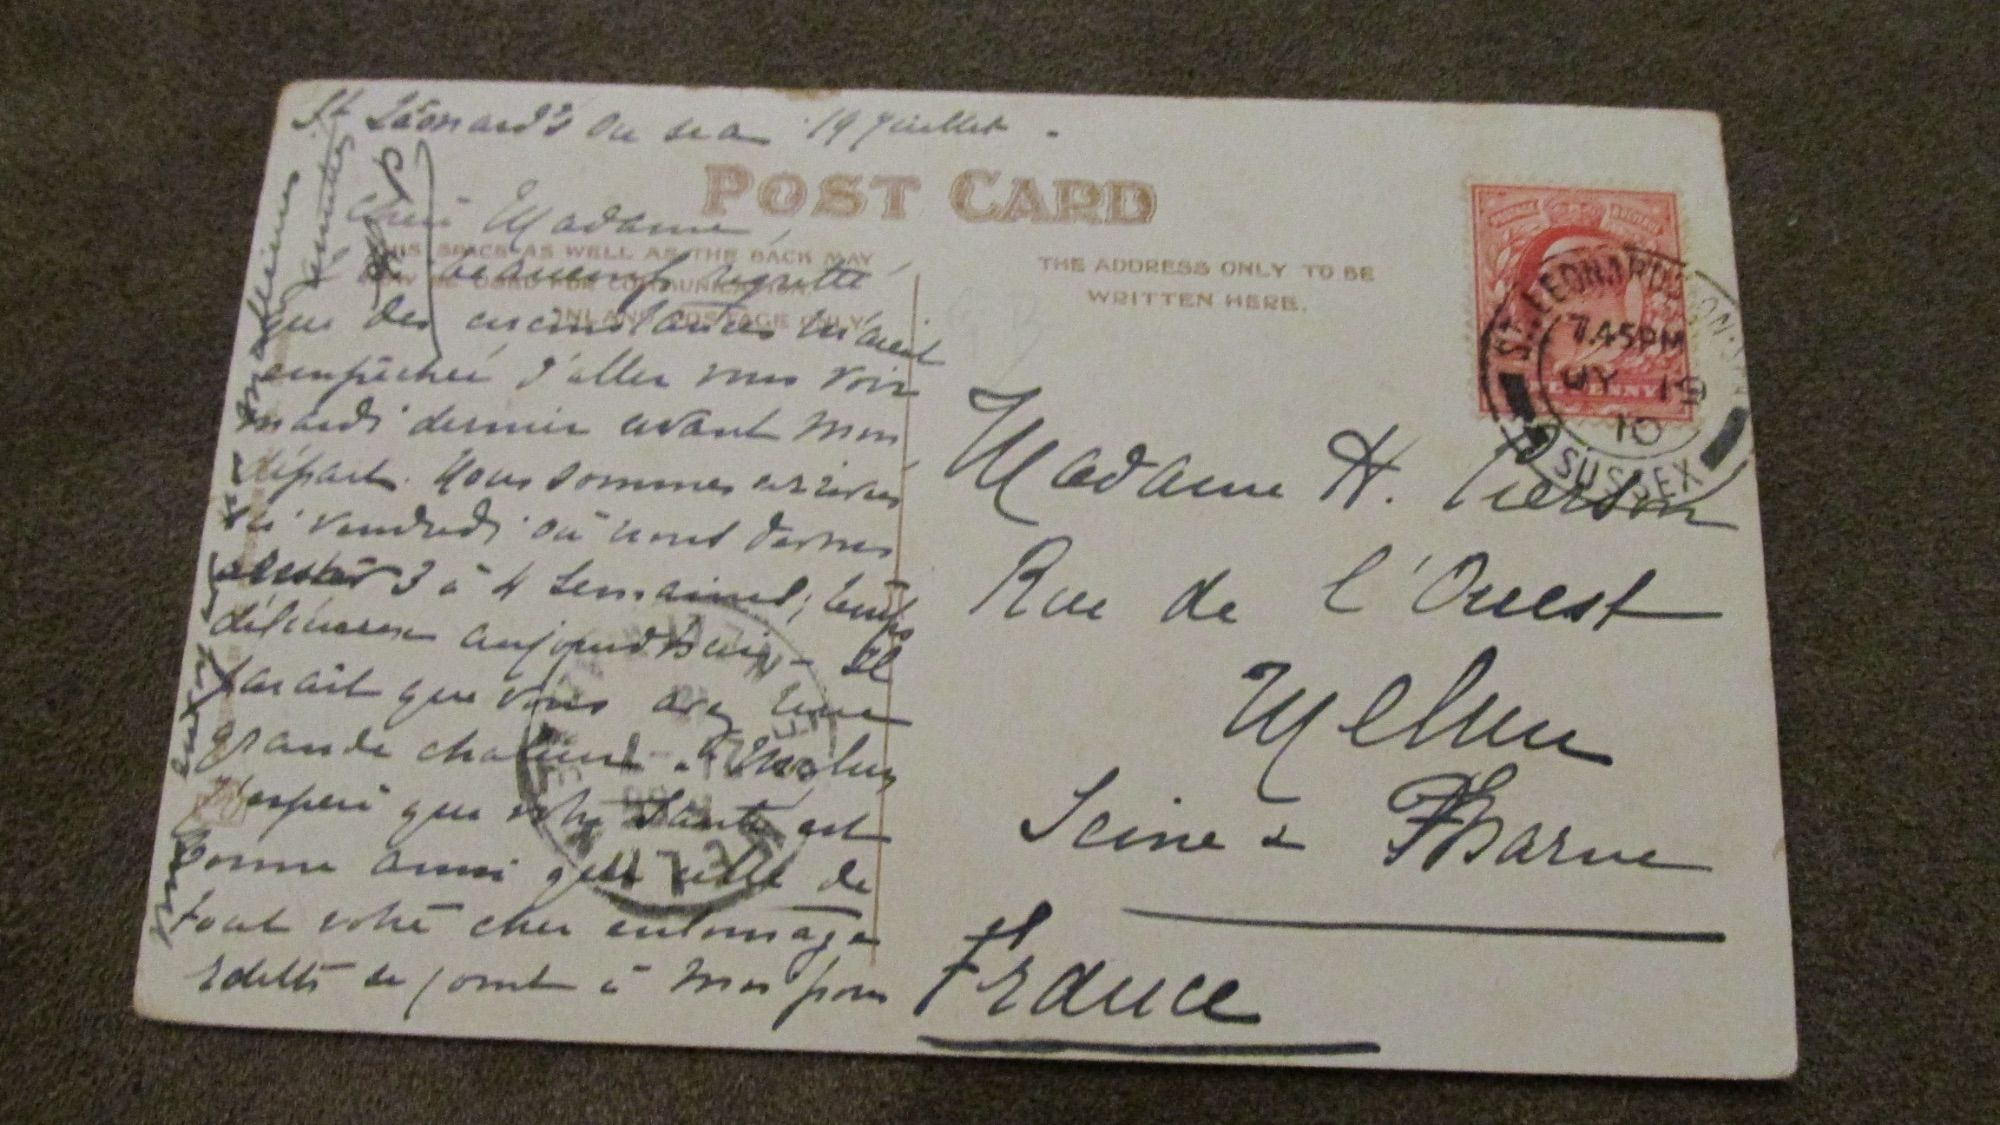 St Léonard's on sea 19 Juillet -
POST CARD
Chère Madame,
THIS SPACE AS WELL AS THE BACK MAY
NOW BE USED FOR COMMUNICATION.
INLAND POSTAGE ONLY.
THE ADDRESS ONLY TO BE
WRITTEN HERE.
beaucoup regretté
que des circonstances m'aient
empêchée d'aller vous voir
mardi dernier avant mon
départ. Nous sommes arrivés
ici vendredi où nous
3 à 4 semaines, temps
délicieux aujourd'hui - Il
parait que vous avez une
grande chaleur à Melun,
J'espère que votre santé est
bonne ainsi que celle de
tout votre cher entourage
se joint à moi pour
Madame H. Pierson
Rue de l'Ouest
Melun
Seine & Marne
France
ST. LEONARDS-ON-SEA
7.45PM
JY 19
10
SUSSEX
PENNY